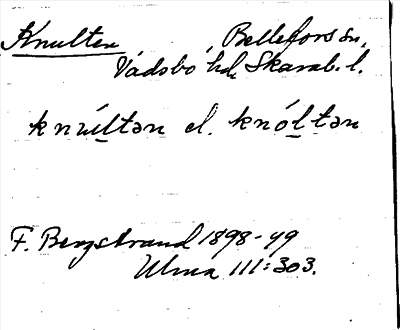 Knulten Bellefors sn,
Vadsbo hd, Skarab. l.
knúltən el. knóltən
F. Bergstrand 1898-99
Ulma 111:303.